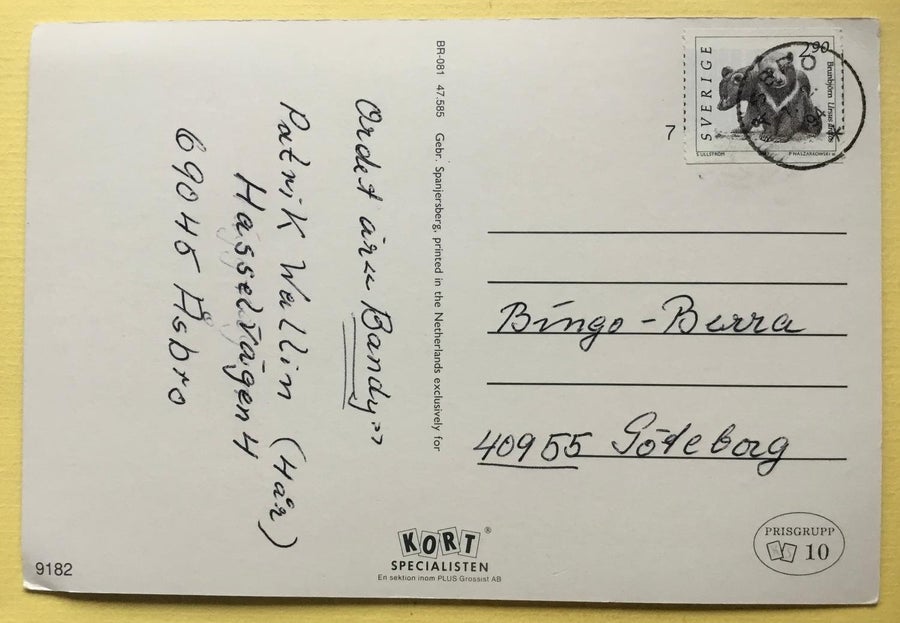 Ordet är "Bandy"
Patrik Wallin (4 år)
Hasselvägen 4
69045 Åsbro
BR-081 47.585 Gebr. Spanjersberg, printed in the Netherlands exclusively for
SVERIGE
2.90
Brunbjörn Ursus arctos
S ULLSTRÖM
P NASZARKOWSKI sc
7
Bingo-Berra
40955 Göteborg
KORT®
SPECIALISTEN
En sektion inom PLUS Grossist AB
PRISGRUPP
10
9182